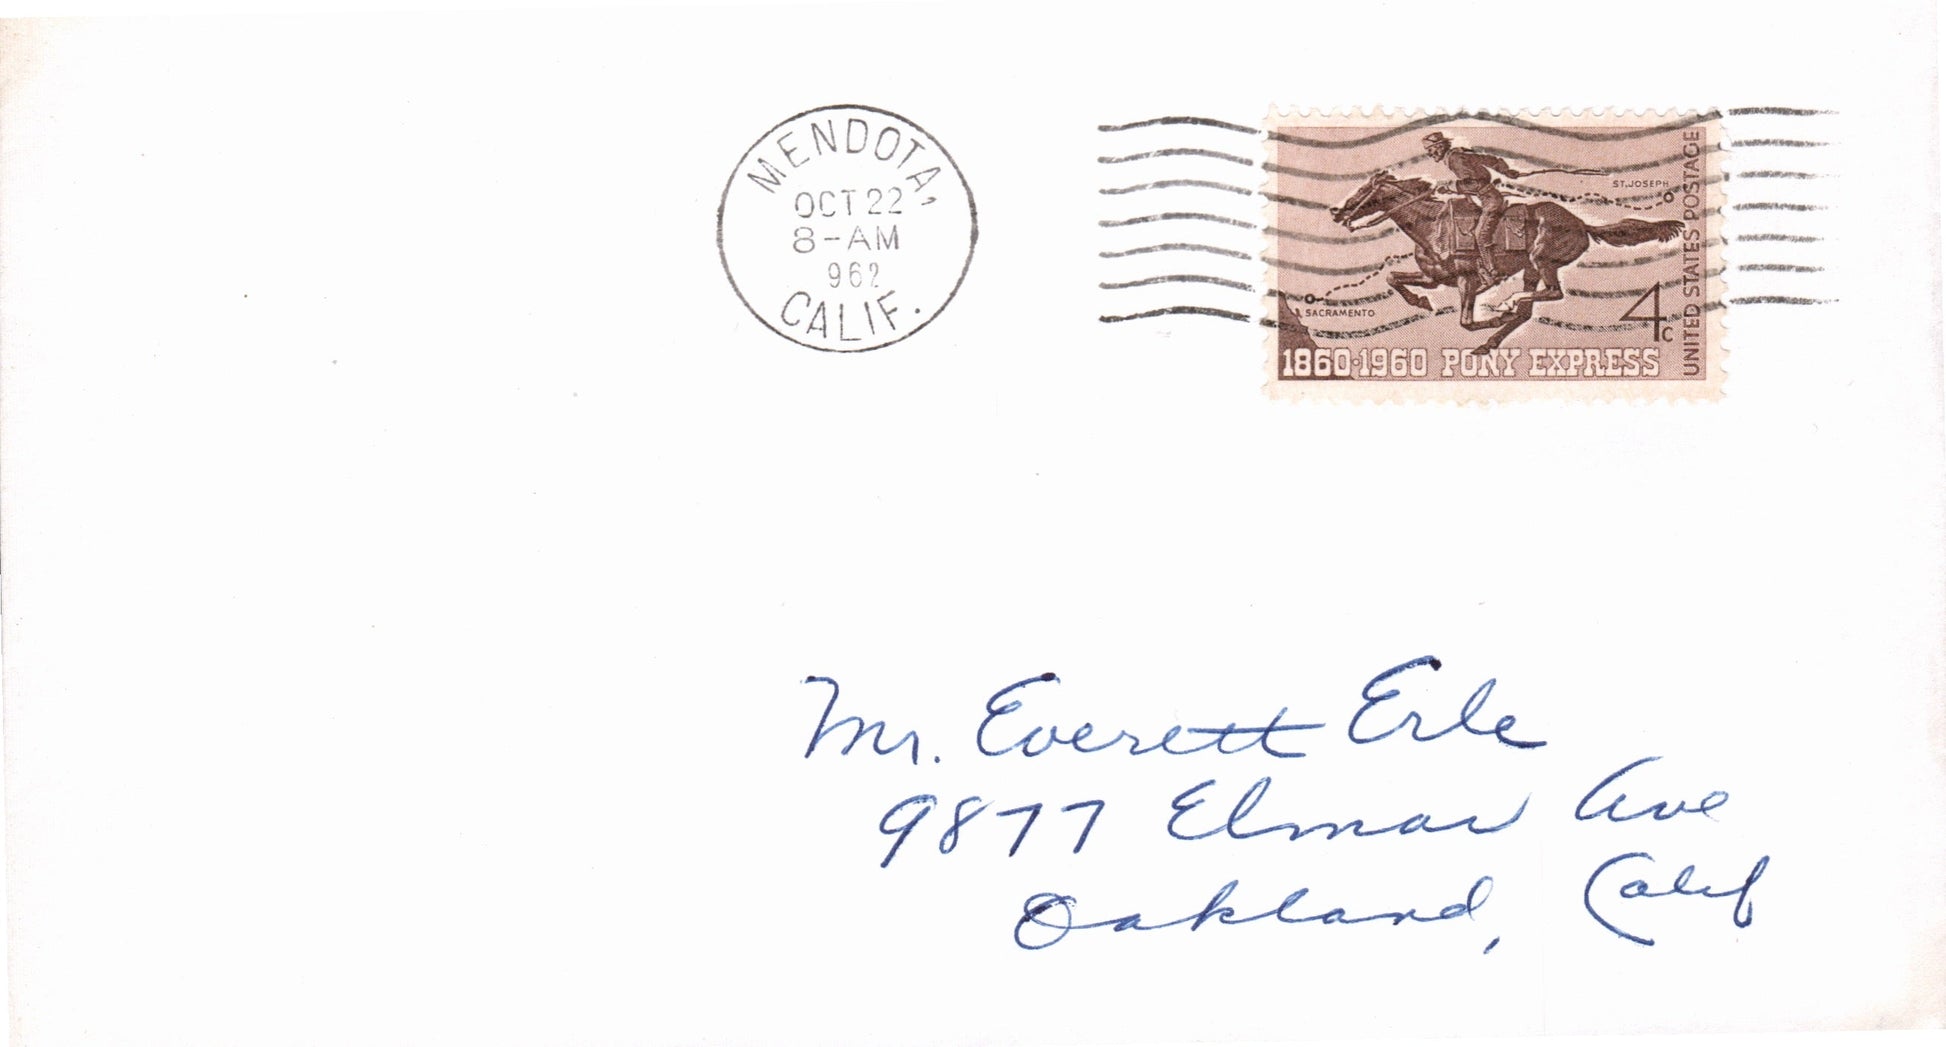 MENDOTA,
OCT 22
8-AM
962
CALIF.
ST. JOSEPH
SACRAMENTO
4c
UNITED STATES POSTAGE
1860·1960 PONY EXPRESS
Mr. Everett Erle
9877 Elmar Ave
Oakland, Calif